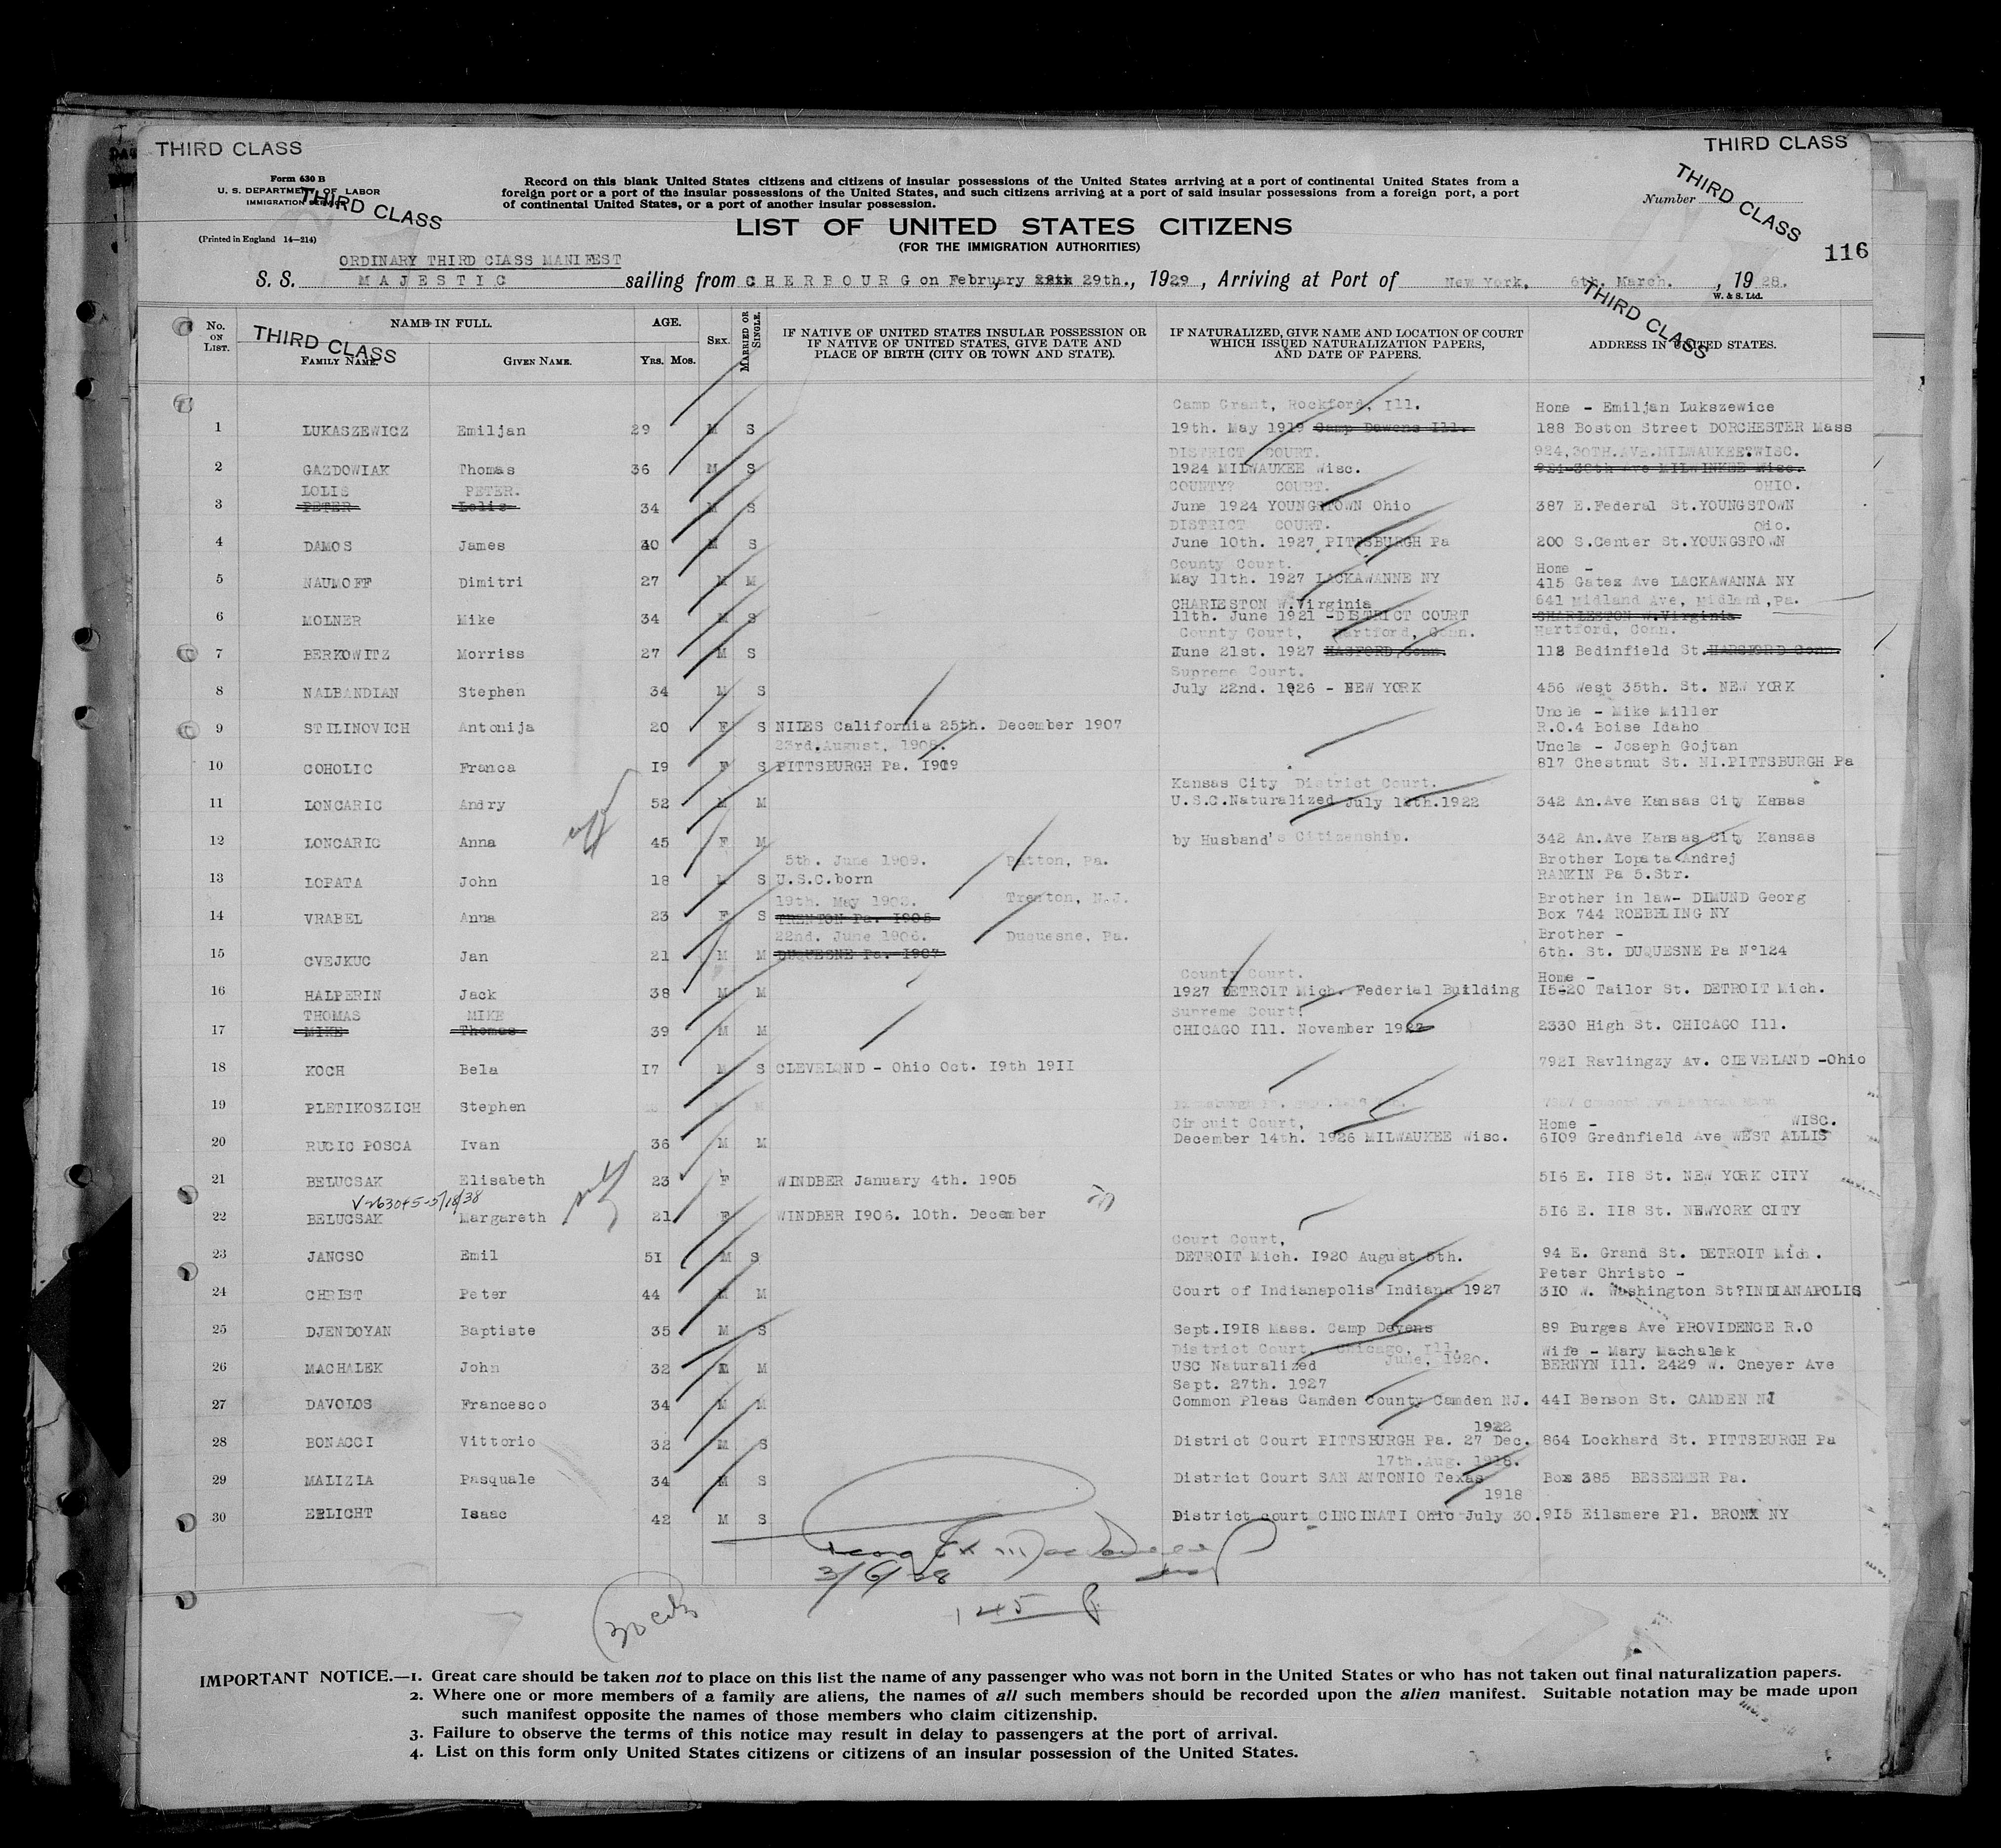 THIRD CLASS
THIRD CLASS
Form 630 B
U. S. DEPARTMENT OF LABOR
IMMIGRATION SERVICE
THIRD CLASS
(Printed in England 14—214)
Record on this blank United States citizens and citizens of insular possessions of the United States arriving at a port of continental United States from a
foreign port or a port of the insular possessions of the United States, and such citizens arriving at a port of said insular possessions from a foreign port, a port
of continental United States, or a port of another insular possession.
THIRD CLASS
Number
LIST OF UNITED STATES CITIZENS
(FOR THE IMMIGRATION AUTHORITIES)
116
ORDINARY THIRD CLASS MANIFEST
S. S. MAJESTIC sailing from CHERBOURG on February 29th., 1929, Arriving at Port of New York, 6th. March. , 1928.
W. & S. Ltd.
THIRD CLASS
THIRD CLASS
No. ON LIST.
NAME IN FULL.
FAMILY NAME.
GIVEN NAME.
AGE.
Yrs. Mos.
SEX.
MARRIED OR SINGLE.
IF NATIVE OF UNITED STATES INSULAR POSSESSION OR
IF NATIVE OF UNITED STATES, GIVE DATE AND
PLACE OF BIRTH (CITY OR TOWN AND STATE).
IF NATURALIZED, GIVE NAME AND LOCATION OF COURT
WHICH ISSUED NATURALIZATION PAPERS,
AND DATE OF PAPERS.
ADDRESS IN UNITED STATES.
Camp Grant, Rockford, Ill. Home - Emiljan Lukszewice
1 LUKASZEWICZ Emiljan 29 M S 19th. May 1919 Camp Dawens Ill. 188 Boston Street DORCHESTER Mass
DISTRICT COURT. 924,30TH.AVE.MILWAUKEE.WISC.
2 GAZDOWIAK Thomas 36 M S 1924 MILWAUKEE Wisc. 924-30th Ave MILWINKEE Wisc.
LOLIS PETER. COUNTY? COURT. OHIO.
3 PETER Lolis 34 M S June 1924 YOUNGSTOWN Ohio 387 E.Federal St.YOUNGSTOWN
DISTRICT COURT. Ohio.
4 DAMOS James 30 M S June 10th. 1927 PITTSBURGH Pa 200 S.Center St.YOUNGSTOWN
County Court. Home -
5 NAUMOFF Dimitri 27 M M May 11th. 1927 LACKAWANNE NY 415 Gates Ave LACKAWANNA NY
CHARIESTON W.Virginia 641 Midland Ave, Midland,Pa.
6 MOLNER Mike 34 M S 11th. June 1921 -DISTRICT COURT CHARLESTON W.Virginia
County Court, Hartford, Conn. Hartford, Conn.
7 BERKOWITZ Morriss 27 M S June 21st. 1927 HASFORD,Conn. 112 Bedinfield St.HARSFORD Conn.
Supreme Court.
8 NALBANDIAN Stephen 34 M S July 22nd. 1926 - NEW YORK 456 West 35th. St. NEW YORK
Uncle - Mike Miller
9 STILINOVICH Antonija 20 F S NILES California 25th. December 1907 R.O.4 Boise Idaho
23rd.August, 1908. Uncle - Joseph Gojtan
10 COHOLIC Franca I9 F S PITTSBURGH Pa. I909 817 Chestnut St. NI.PITTSBURGH Pa
Kansas City District Court.
11 LONCARIC Andry 52 M M U.S.C.Naturalized July 14th.1922 342 An.Ave Kansas City Kansas
12 LONCARIC Anna 45 F M by Husband's Citizenship. 342 An.Ave Kansas City Kansas
5th. June 1909. Patton, Pa. Brother Lopata Andrej
13 LOPATA John 18 M S U.S.C.born RANKIN Pa 5.Str.
19th. May 1903. Trenton, N.J. Brother in law- DIMUND Georg
14 VRABEL Anna 23 F S TRENTON Pa. I905 Box 744 ROEBLING NY
22nd. June 1906. Duquesne, Pa. Brother -
15 CVEJKUC Jan 21 M M DUQUESNE Pa. I907 6th. St. DUQUESNE Pa N°124
County Court. Home -
16 HALPERIN Jack 38 M M 1927 DETROIT Mich. Federial Building I5420 Tailor St. DETROIT Mich.
THOMAS MIKE Supreme Court.
17 MIKE Thomas 39 M M CHICAGO Ill. November 1927 2330 High St. CHICAGO Ill.
18 KOCH Bela I7 M S CLEVELOND - Ohio Oct. I9th 19II 792I Ravlingzy Av. CIEVELAND -Ohio
19 PLETIKOSZICH Stephen
Circuit Court, Home - WISC.
20 RUCIC POSCA Ivan 36 M M December 14th. 1926 MILWAUKEE Wisc. 6I09 Grednfield Ave WEST ALLIS
21 BELUCSAK Elisabeth 23 F WINDBER January 4th. 1905 5I6 E. II8 St. NEW YORK CITY
V-263045-5/18/38
22 BELUCSAK Margareth 21 F WINDBER I906. 10th. December 5I6 E. II8 St. NEWYORK CITY
Court Court,
23 JANCSO Emil 5I M S DETROIT Mich. I920 August 5th. 94 E. Grand St. DETROIT Mich.
Peter Christo -
24 CHRIST Peter 44 M M Court of Indianapolis Indiana 1927 3I0 W. Washington St?INDIANAPOLIS
25 DJENDOYAN Baptiste 35 M S Sept.I9I8 Mass. Camp Devens 89 Burges Ave PROVIDENCE R.O
District Court, Chicago, Ill. Wife - Mary Machalek
26 MACHALEK John 32 M M USC Naturalized June, 1920. BERNYN Ill. 2429 W. Cneyer Ave
Sept. 27th. 1927
27 DAVOLOS Francesco 34 M M Common Pleas Camden County Camden NJ. 44I Benson St. CAMDEN NJ
1922
28 BONACCI Vittorio 32 M S District Court PITTSBURGH Pa. 27 Dec. 864 Lockhard St. PITTSBURGH Pa
17th.Aug. 1918.
29 MALIZIA Pasquale 34 M S District Court SAN ANTONIO Texas Box 385 BESSEMER Pa.
1918
30 ERLICHT Isaac 42 M S District court CINCINATI Ohio July 30. 9I5 Eilsmere Pl. BRONX NY
3/6/28
145
IMPORTANT NOTICE.—1. Great care should be taken not to place on this list the name of any passenger who was not born in the United States or who has not taken out final naturalization papers.
2. Where one or more members of a family are aliens, the names of all such members should be recorded upon the alien manifest. Suitable notation may be made upon
such manifest opposite the names of those members who claim citizenship.
3. Failure to observe the terms of this notice may result in delay to passengers at the port of arrival.
4. List on this form only United States citizens or citizens of an insular possession of the United States.